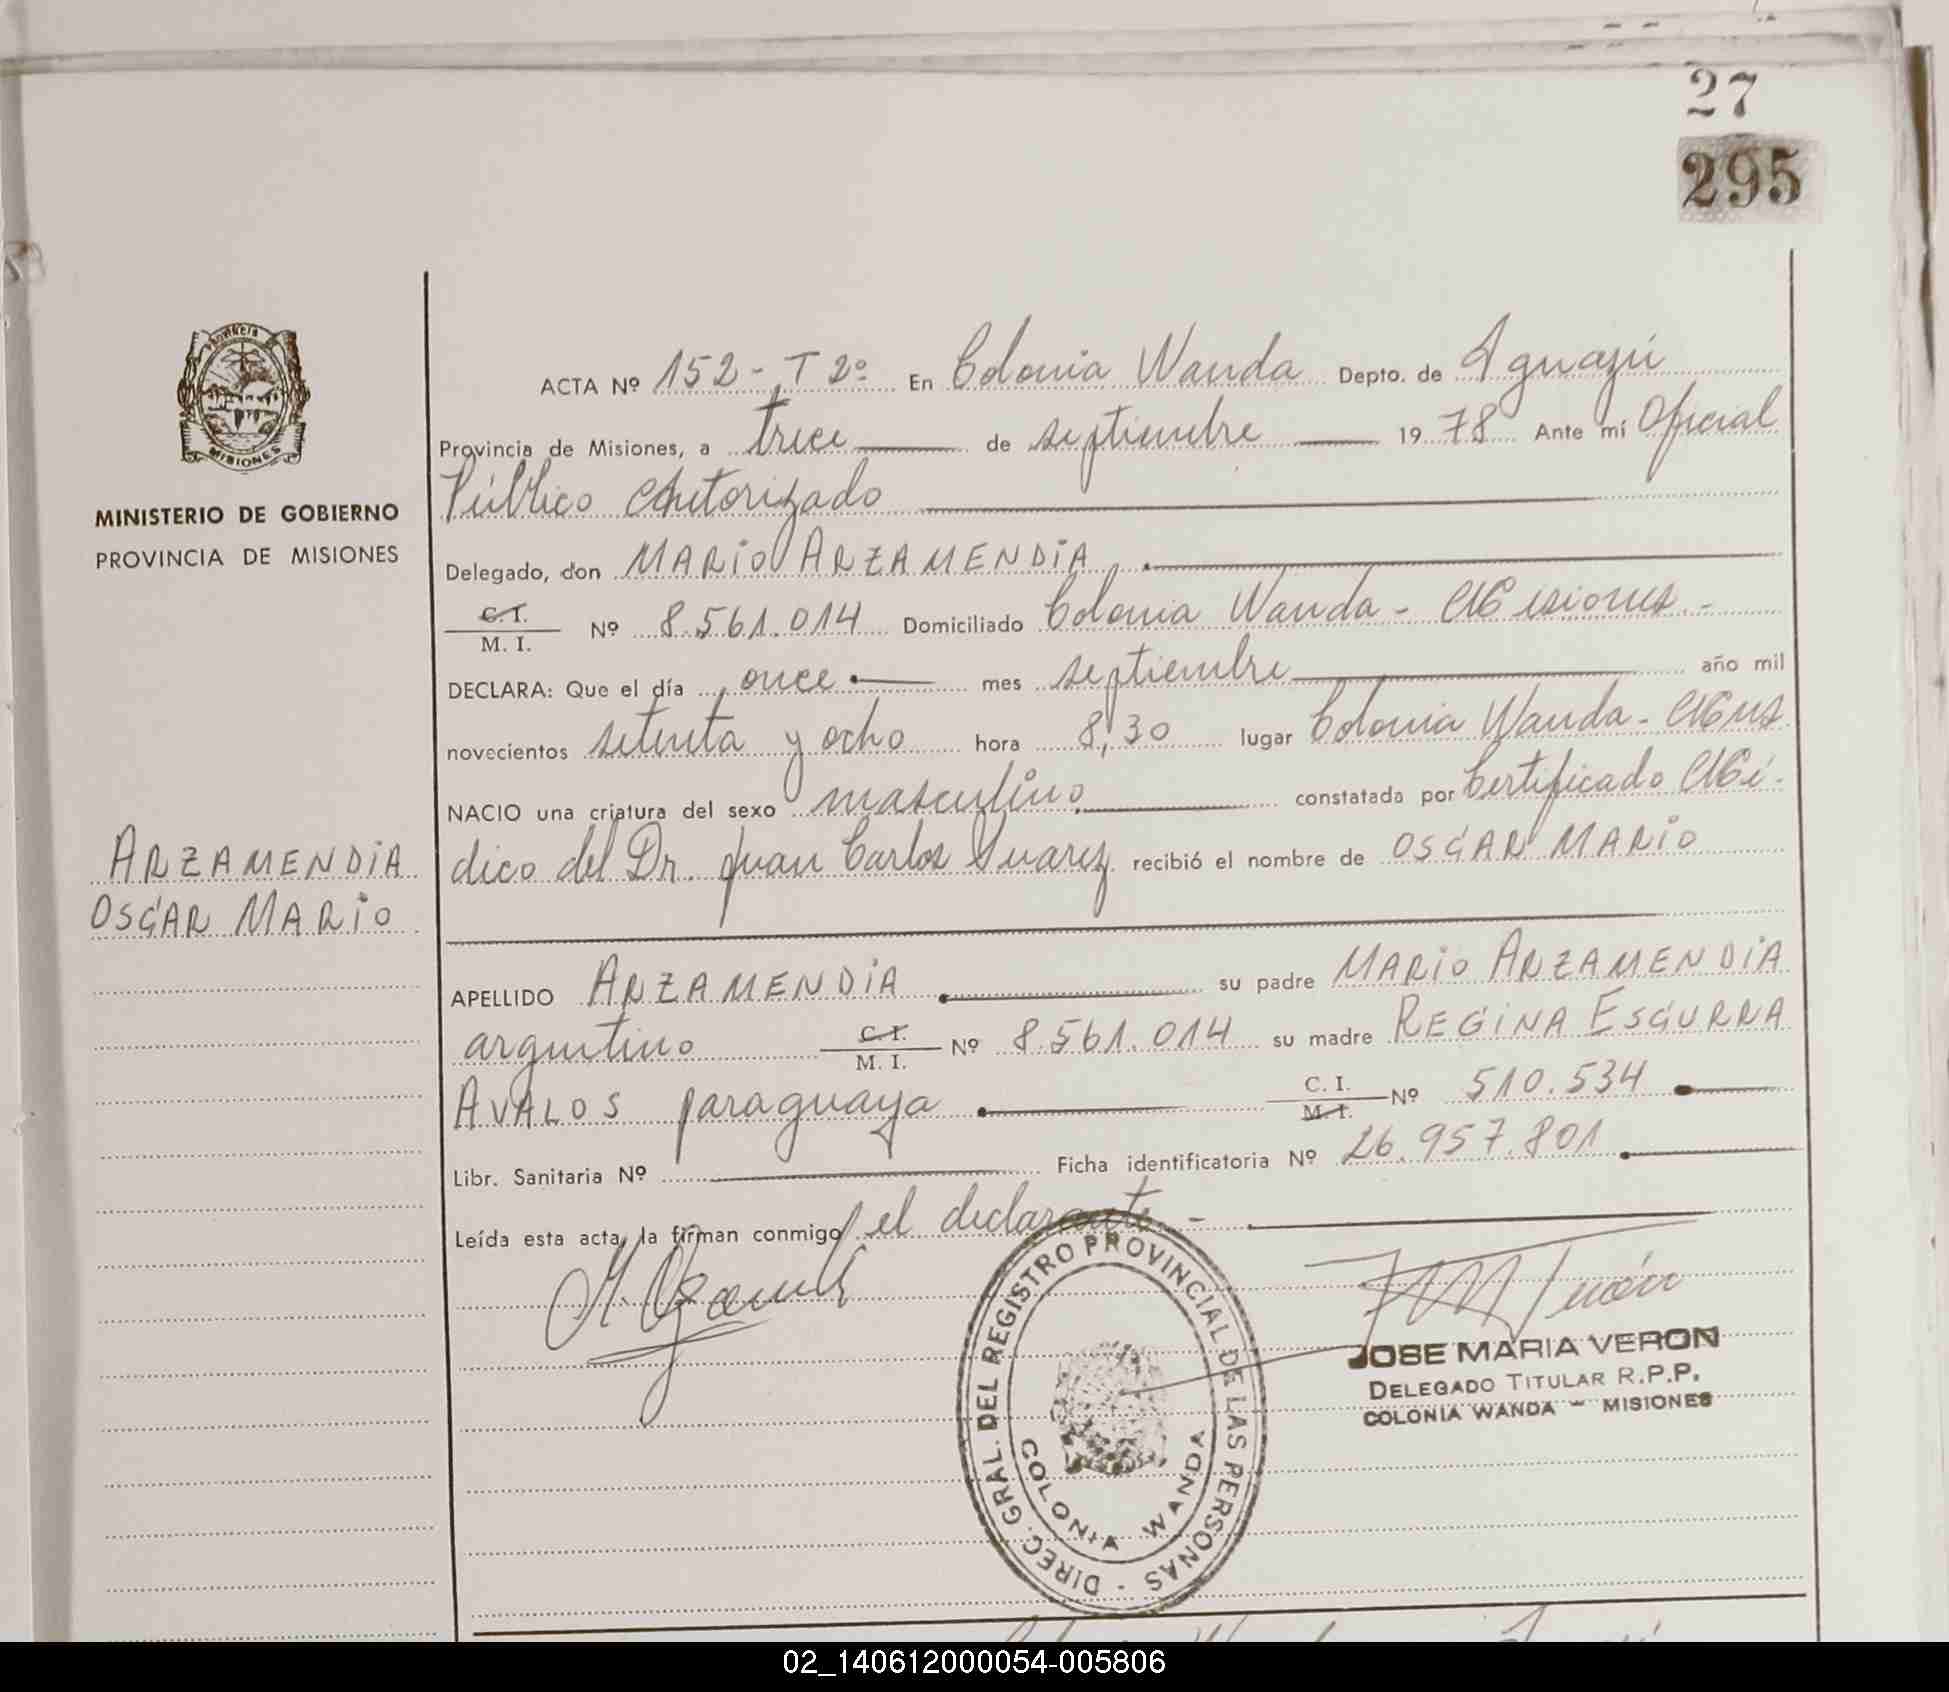 27
295
PROVINCIA
MISIONES
MINISTERIO DE GOBIERNO
PROVINCIA DE MISIONES
ARZAMENDIA
OSCAR MARIO
ACTA Nº 152 - T 2º En Colonia Wanda Depto. de Iguazú
Provincia de Misiones, a trece de septiembre 1978 Ante mí Oficial
Público Autorizado
Delegado, don MARIO ARZAMENDIA
C. I.
M. I. Nº 8.561.014 Domiciliado Colonia Wanda - Misiones -
DECLARA: Que el día once mes septiembre año mil
novecientos setenta y ocho hora 8,30 lugar Colonia Wanda - Mnes.
NACIO una criatura del sexo masculino constatada por Certificado Mé-
dico del Dr. Juan Carlos Suarez recibió el nombre de OSCAR MARIO
APELLIDO ARZAMENDIA su padre MARIO ARZAMENDIA
argentino C. I. M. I. Nº 8.561.014 su madre REGINA ESGURRA
AVALOS paraguaya C. I. M. I. Nº 510.534
Libr. Sanitaria Nº Ficha identificatoria Nº 26.957.801
Leída esta acta, la firman conmigo el declarante -
DIREC. GRAL. DEL REGISTRO PROVINCIAL DE LAS PERSONAS -
COLONIA WANDA
JOSE MARIA VERON
DELEGADO TITULAR R.P.P.
COLONIA WANDA - MISIONES
02_140612000054-005806